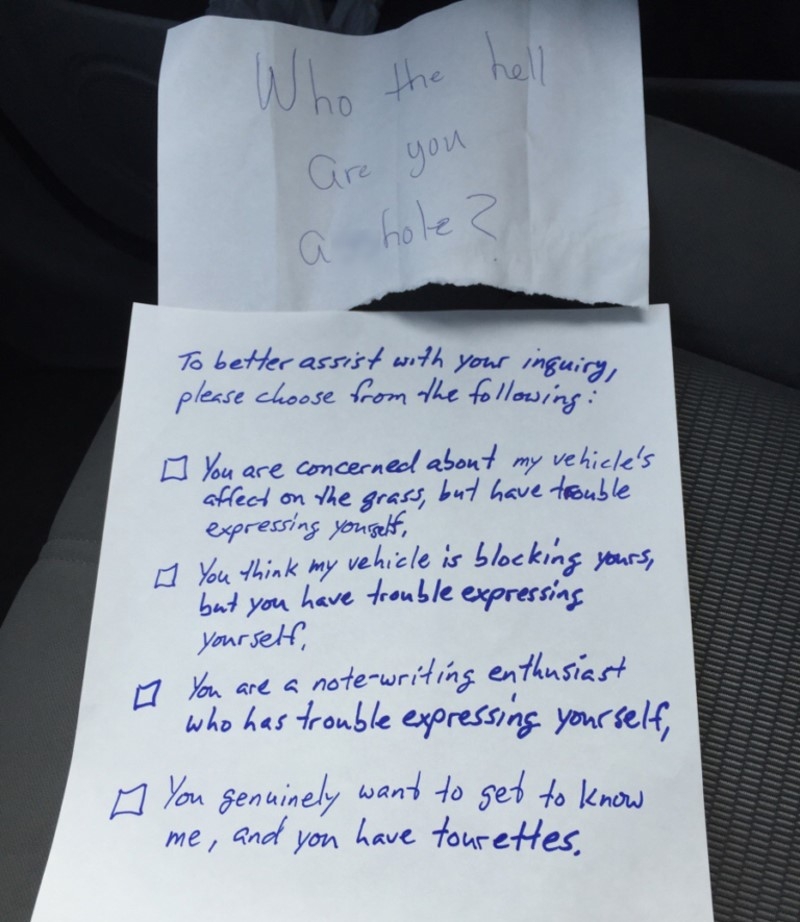 Who the hell
are you
a hole?
To better assist with your inquiry,
please choose from the following:
You are concerned about my vehicle's
affect on the grass, but have trouble
expressing yourself,
You think my vehicle is blocking yours,
but you have trouble expressing
yourself,
You are a note-writing enthusiast
who has trouble expressing yourself,
You genuinely want to get to know
me, and you have tourettes.